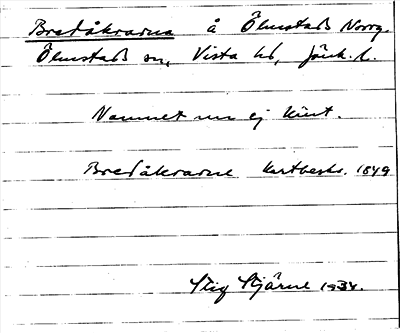 Bredåkrarna å Ölmstads Norrg.
Ölmstads sn, Vista hd, Jönk. l.
Namnet nu ej känt.
Bredåkrarne kartbeskr. 1849
Stig Stjärne 1934.